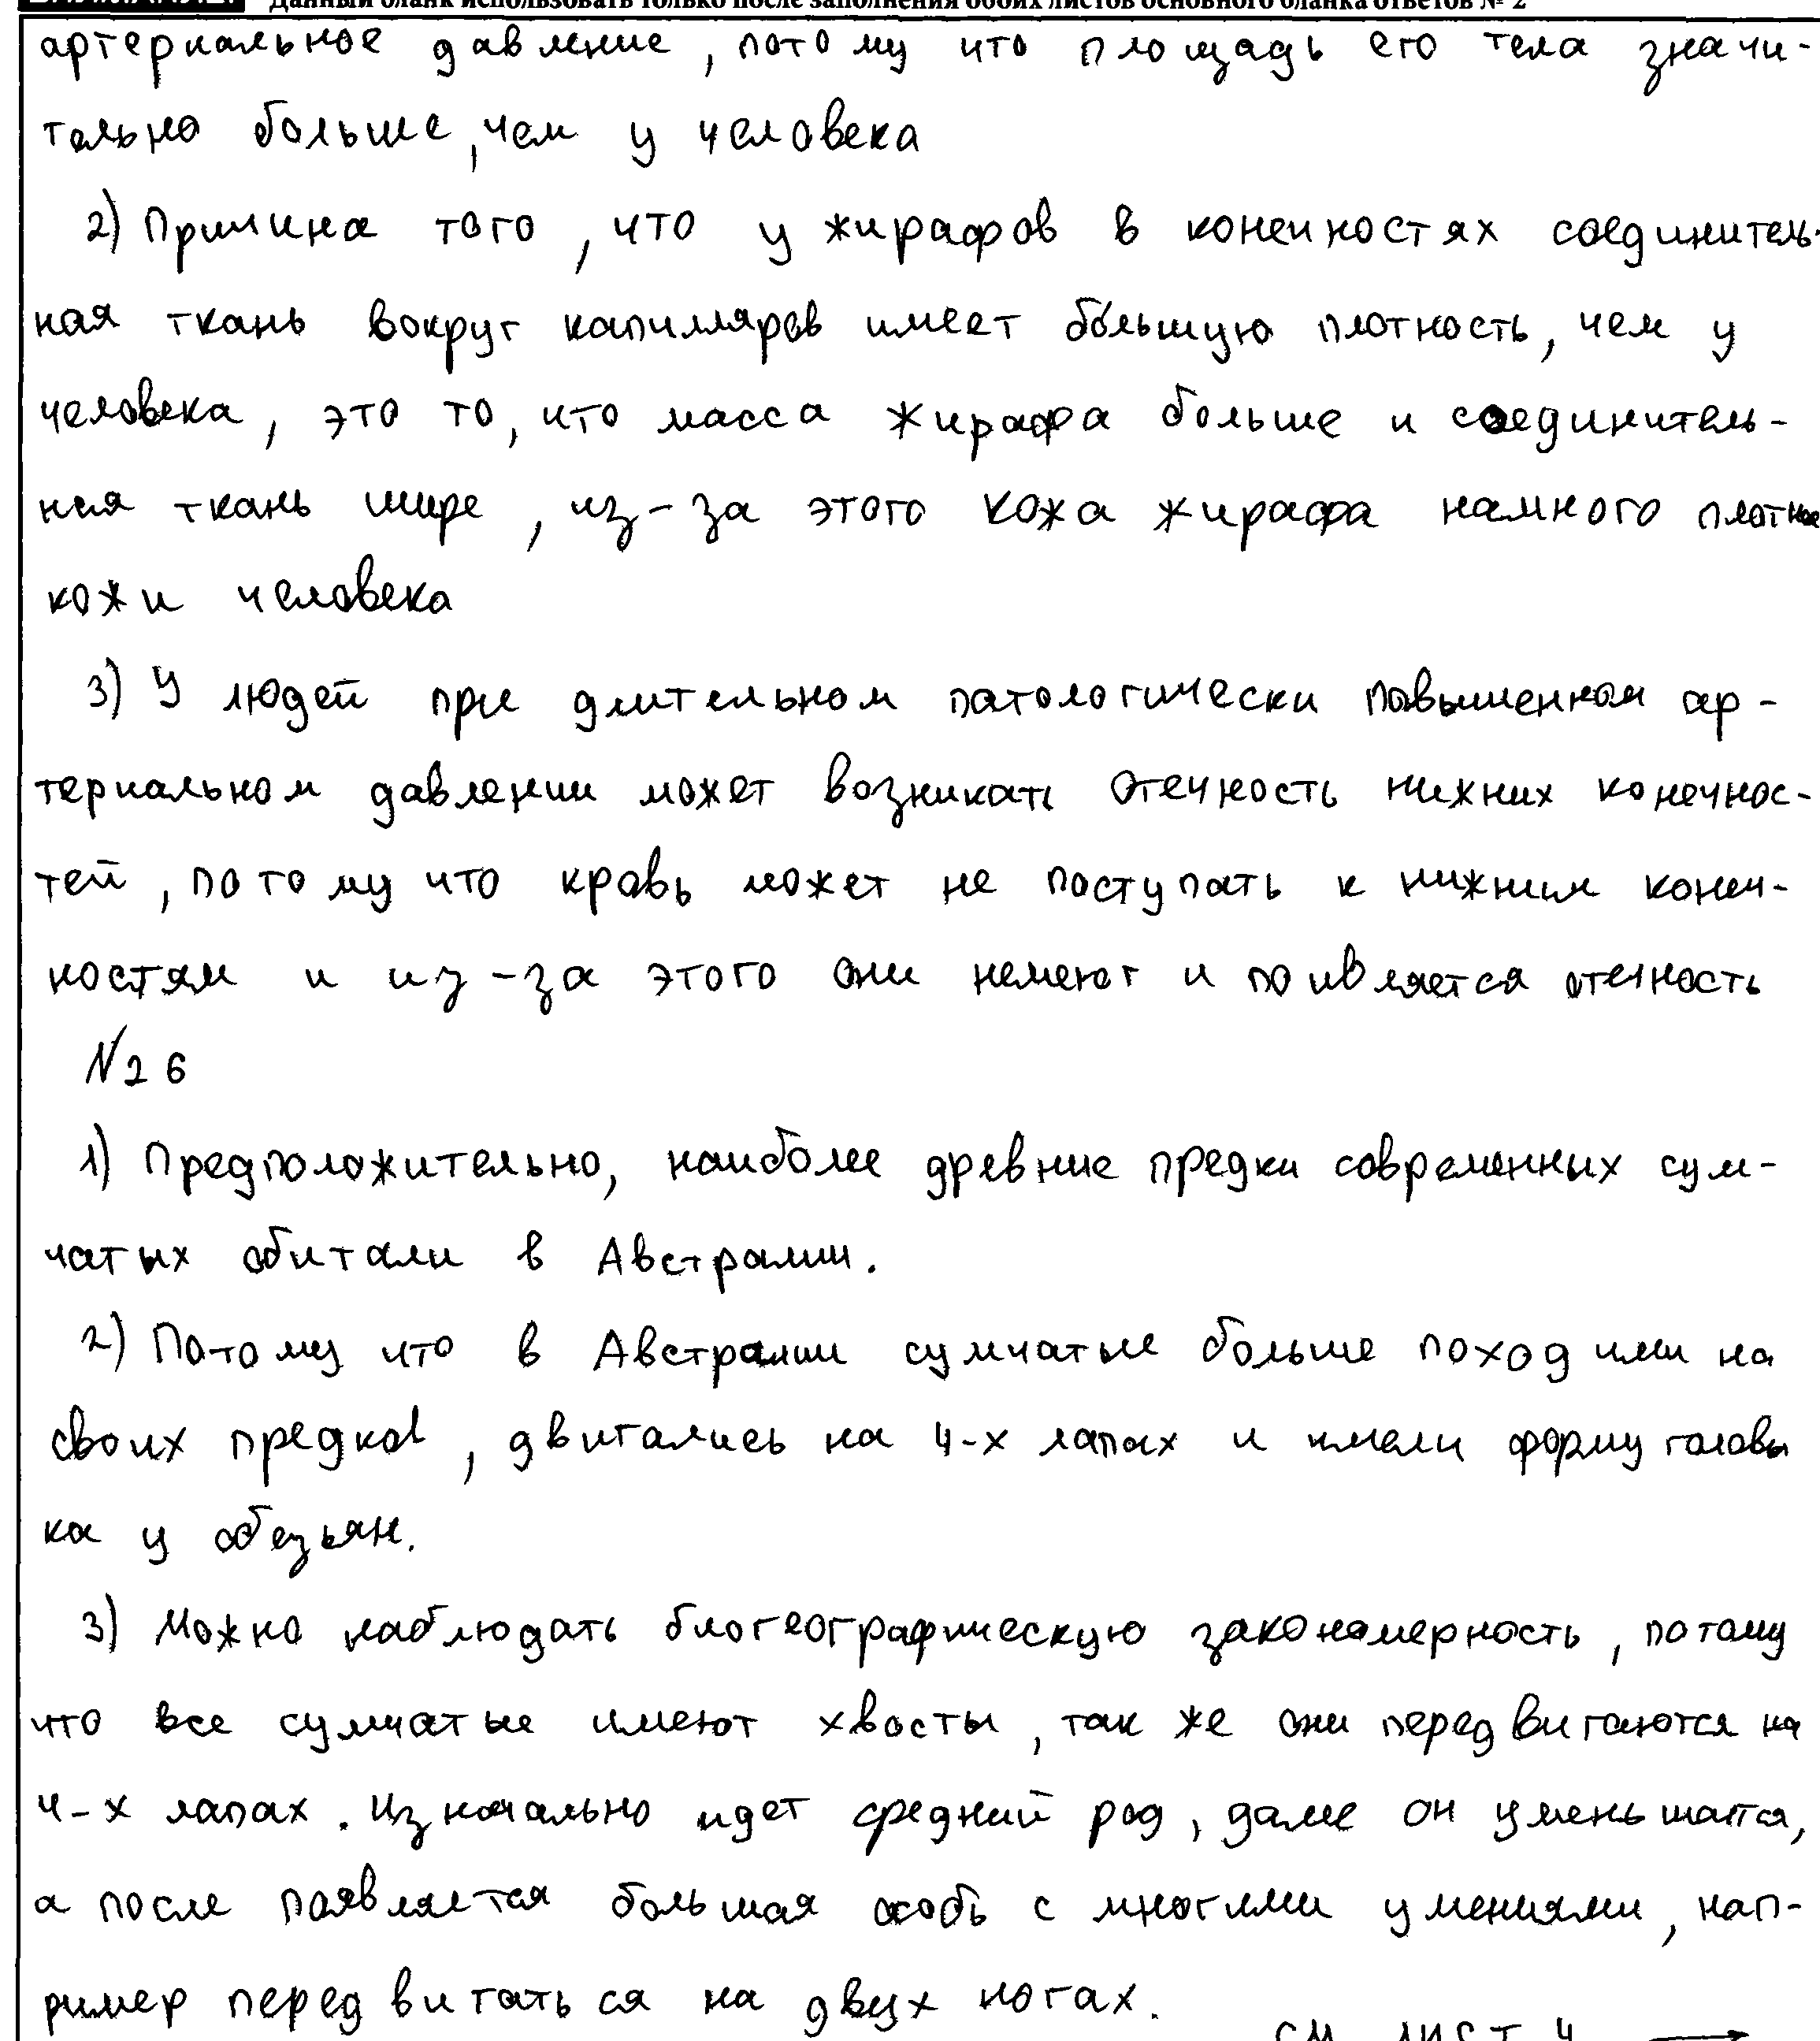 Данный бланк использовать только после заполнения обоих листов основного бланка ответов № 2
артериальное давление, потому что площадь его тела значи-
тельно больше, чем у человека
2) Причина того, что у жирафов в конечностях соединитель-
ная ткань вокруг капилляров имеет бо́льшую плотность, чем у
человека, это то, что масса жирафа больше и соединитель-
ная ткань шире, из-за этого кожа жирафа намного плотнее
кожи человека
3) У людей при длительном патологически повышенном ар-
териальном давлении может возникать отечность нижних конечнос-
тей, потому что кровь может не поступать к нижним конеч-
ностям и из-за этого они немеют и поивляется отечность
№26
1) Предположительно, наиболее древние предки современных сум-
чатых обитали в Австралии.
2) Потому что в Австралии сумчатые больше походили на
своих предков, двигались на 4-х лапах и имели форму головы
ка у обезьян.
3) Можно наблюдать биогеографическую закономерность, потому
что все сумчатые имеют хвосты, так же они передвигаются на
4-х лапах. Изначально идет средний род, далее он уменьшатся,
а после появляется большая особь с многими умениями, нап-
ример передвигаться на двух ногах.
см лист 4 →